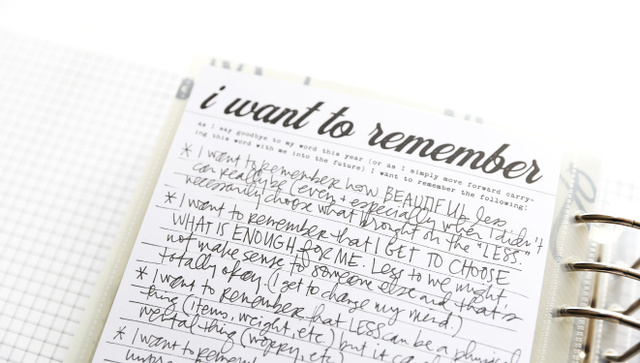 i want to remember
as i say goodbye to my word this year (or as i simply move forward carry-
ing this word with me into the future) i want to remember the following:
* I want to remember how BEAUTIFUL less
can really be (even + especially when I didn't
necessarily choose what brought on the "LESS."
* I want to remember that I GET TO CHOOSE
WHAT IS ENOUGH for ME. Less to me might
not make sense to someone else and that's
totally okay. (I get to change my mind.)
* I want to remember that LESS can be a physical
thing (items, weight, etc) but it
mental thing (worry, etc)
* I want to remember